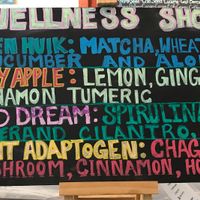 WELLNESS SHO
EN HULK: MATCHA, WHEAT
CUCUMBER AND ALO
Y APPLE: LEMON, GING
NAMON TUMERIC
D DREAM: SPIRULINA
ER AND CILANTRO,
T ADAPTOGEN: CHAG
SHROOM, CINNAMON, HO